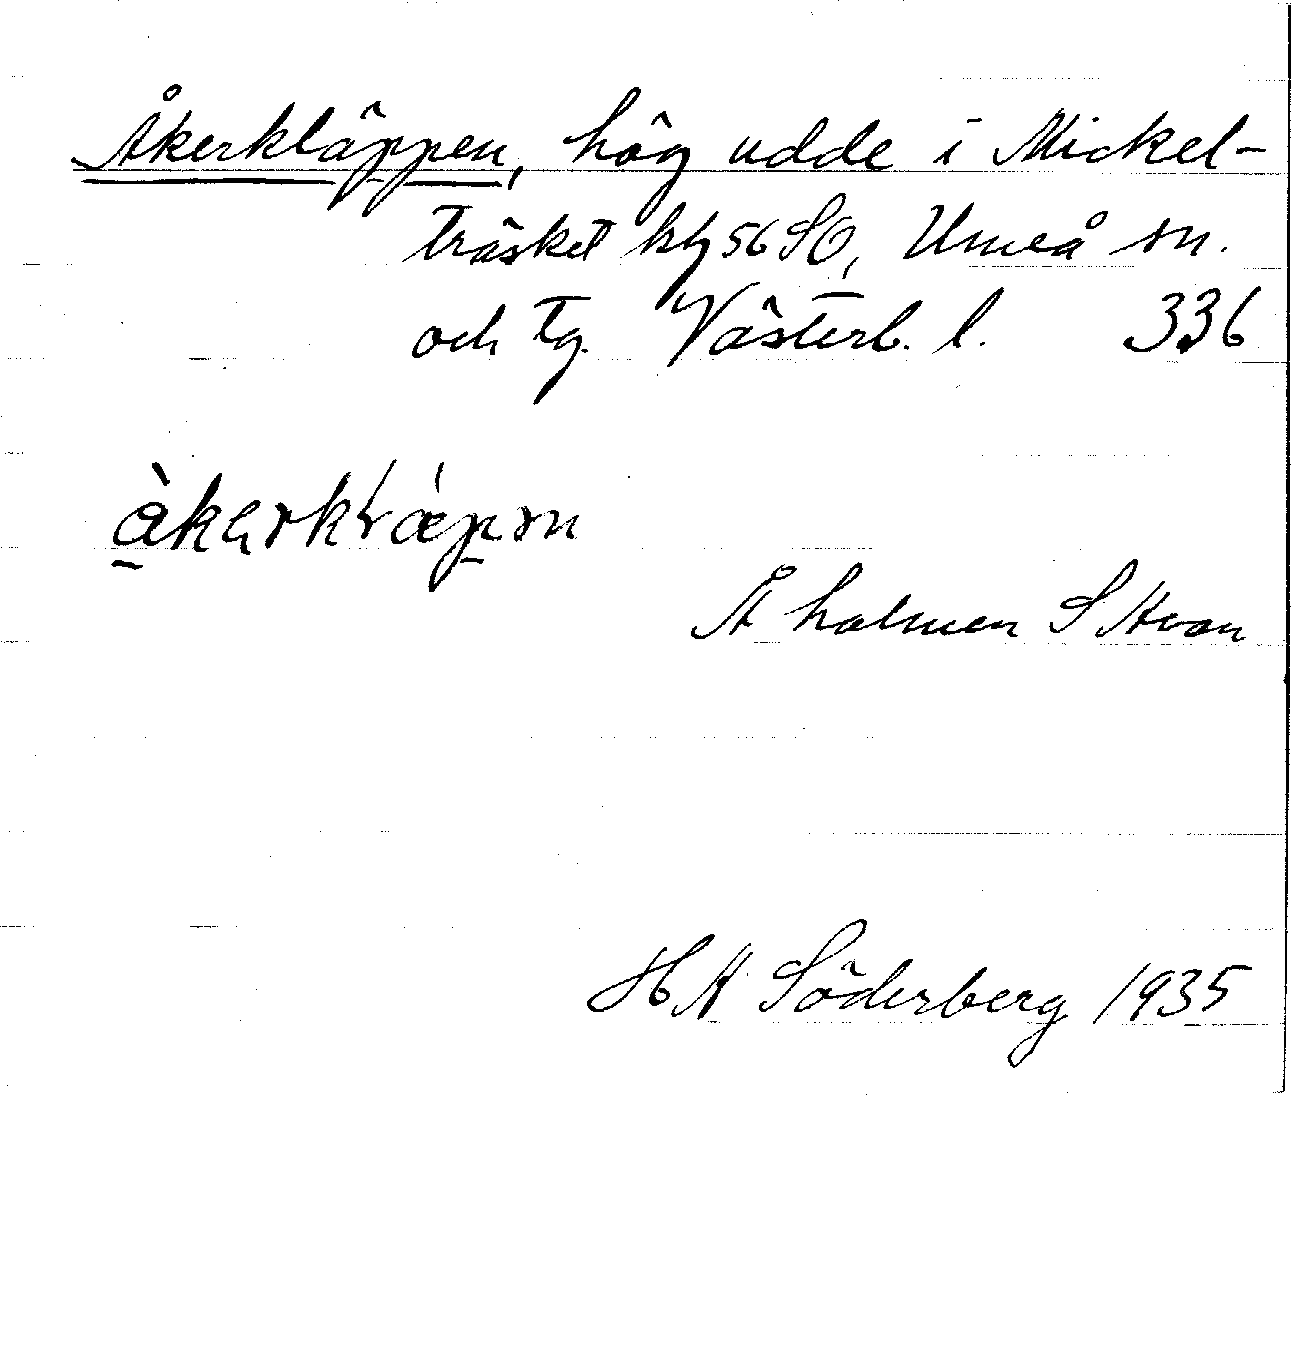 Åkerkläppen, hög udde i Mickel-
träsket kbl 56 SO, Umeå sn.
och tg. Västerb. l. 336
Åholmen S Avan
H A Söderberg 1935